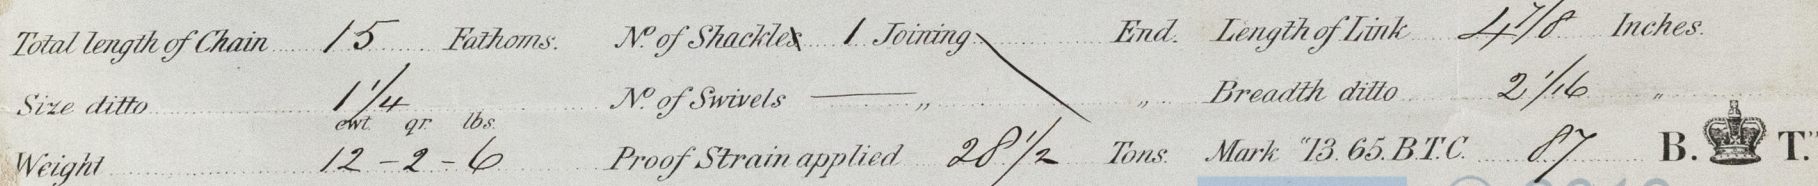 Total length of Chain 15 Fathoms. No. of Shackles 1 Joining End. Length of Link 4 7/8 Inches.
Size ditto 1 1/4 No. of Swivels — „ „ Breadth ditto 2 1/16 „
cwt qr lbs.
Weight 12 - 2 - 6 Proof Strain applied 28 1/2 Tons. Mark "13.65.B.T.C. 87 B. T."